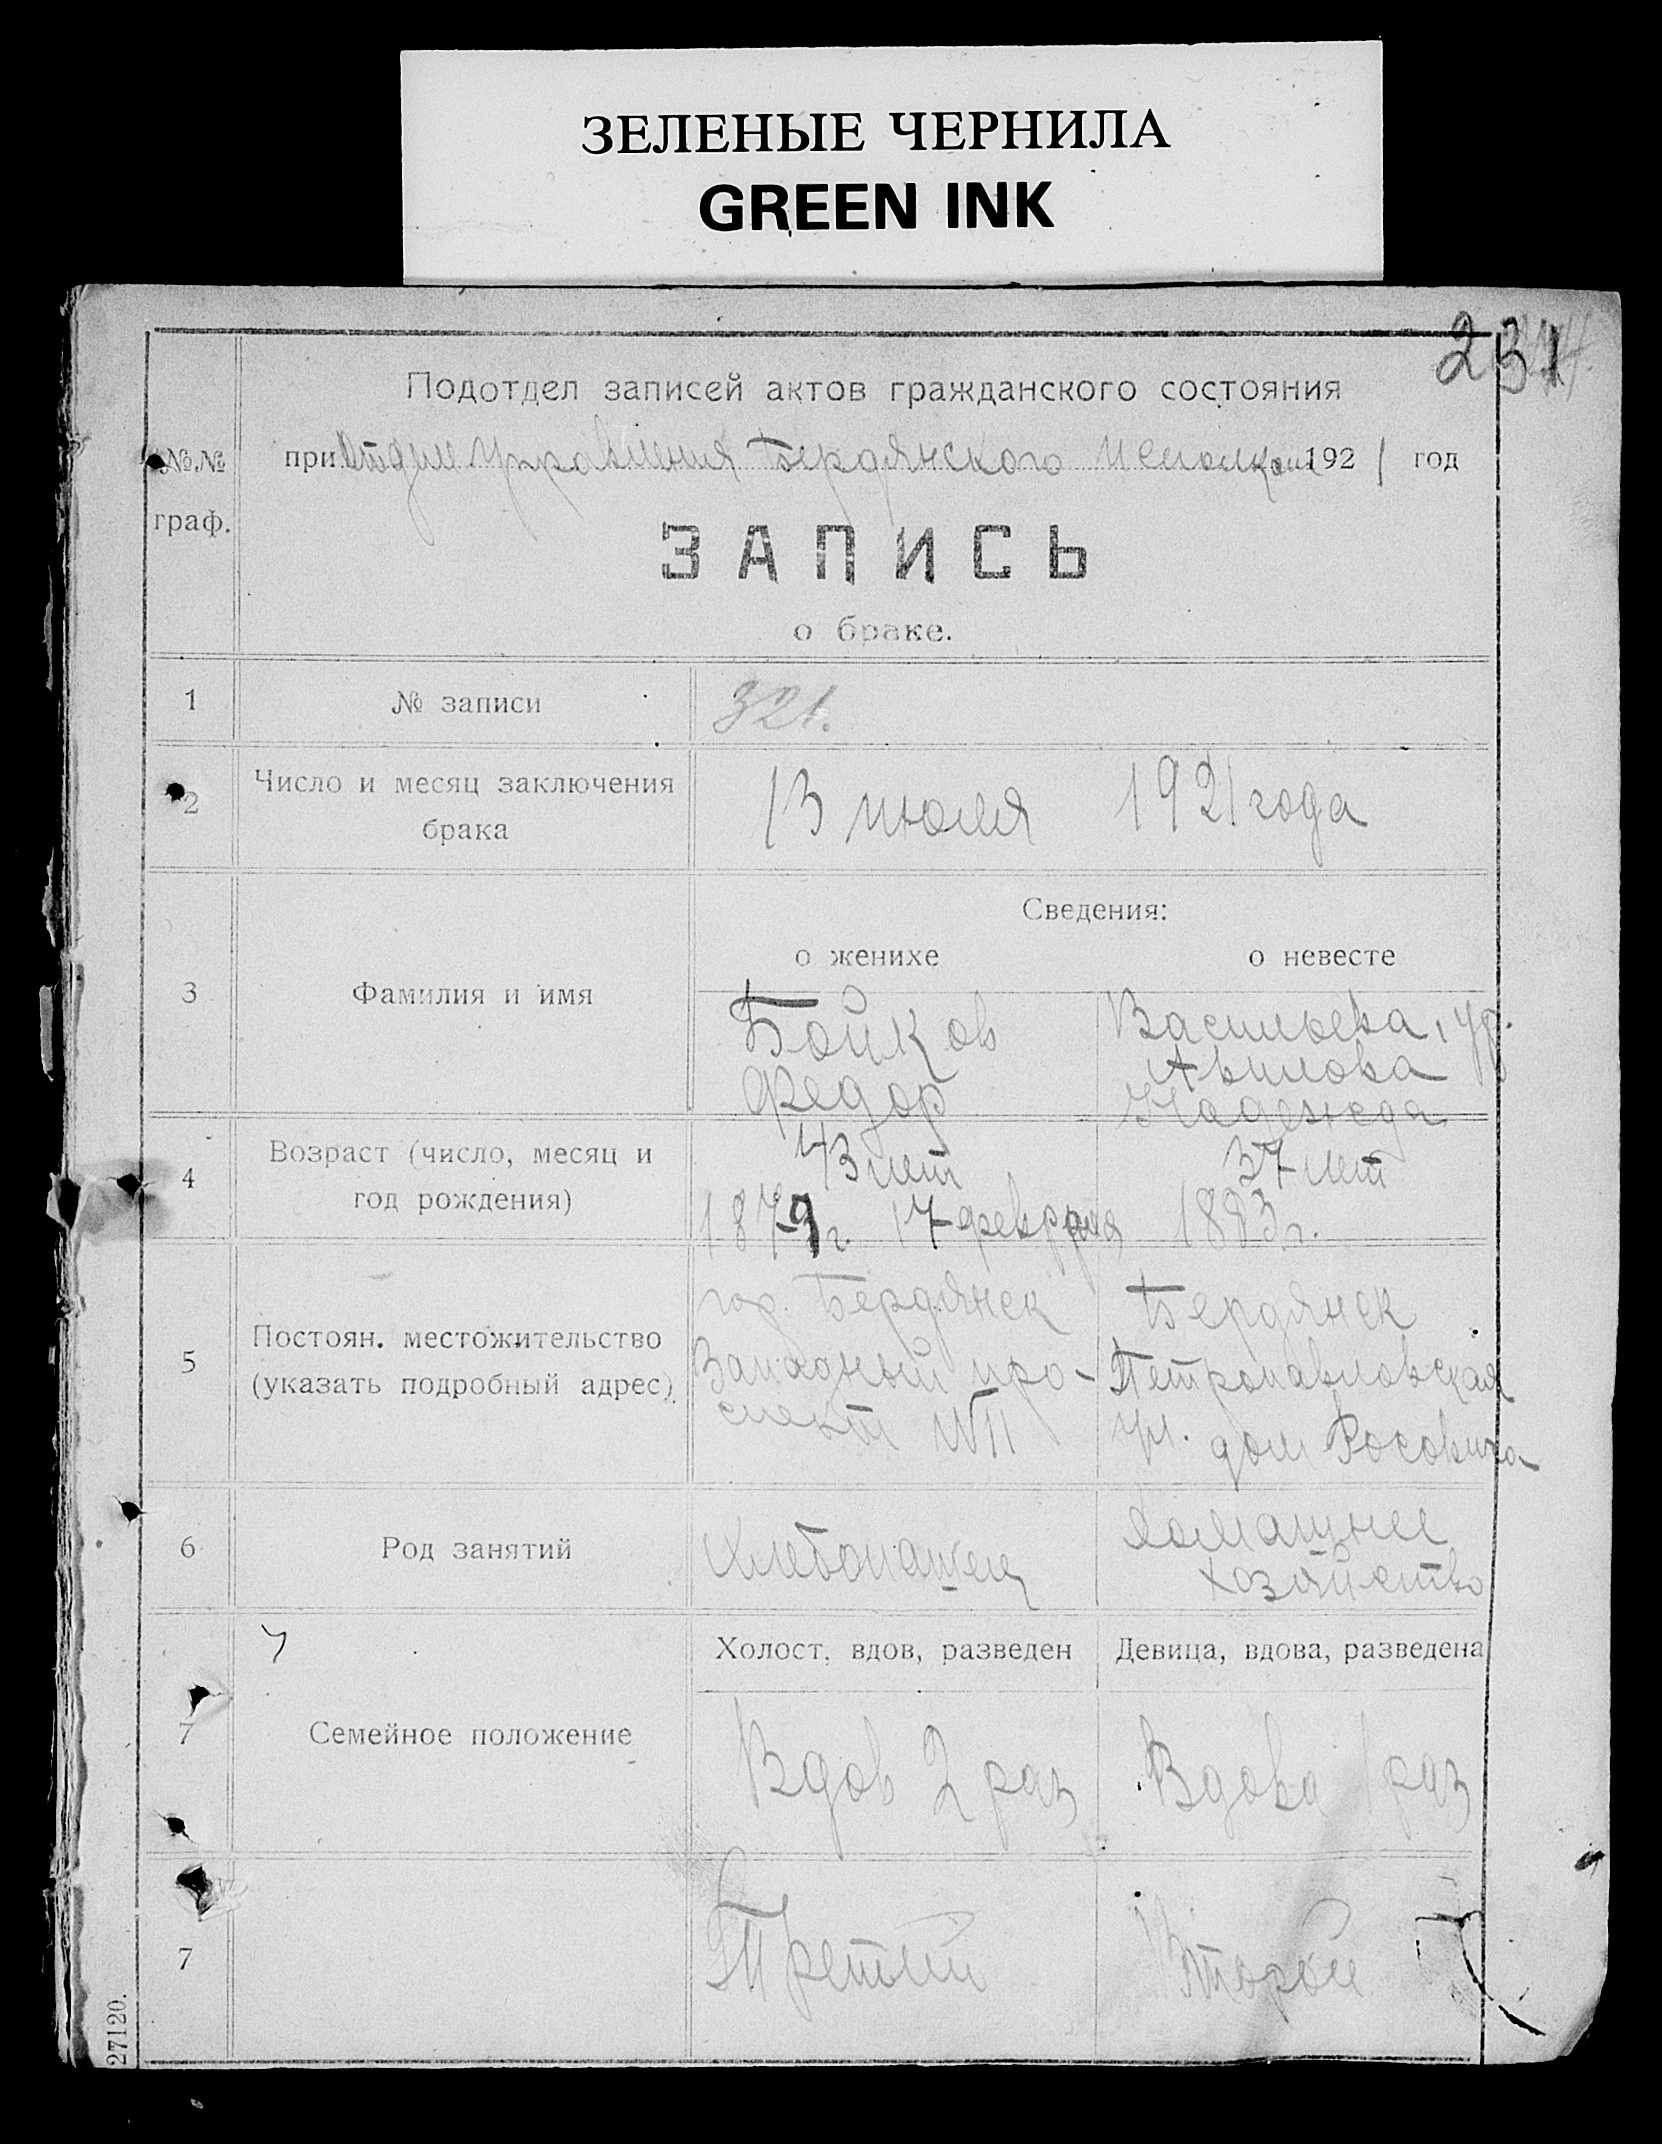 ЗЕЛЕНЫЕ ЧЕРНИЛА
GREEN INK
231
Подотдел записей актов гражданского состояния
№.№ граф.
при Отделе Управления Бердянского Исполкома 1921 год
ЗАПИСЬ
о браке.
1 № записи 321.
2 Число и месяц заключения
брака
13 июля 1921 года
Сведения:
о женихе о невесте
3 Фамилия и имя
Бойков
Федор
Васильева, ур.
Авилова
Надежда
4 Возраст (число, месяц и
год рождения)
43 лет
1879 г. 17 февраля
37 лет
1883 г.
5 Постоян. местожительство
(указать подробный адрес)
гор. Бердянск
Западный про-
спект №11
Бердянск
Петропавловская
ул. дом Росовича
6 Род занятий
Хлебопашец
Домашнее
хозяйство
Холост, вдов, разведен
Девица, вдова, разведена
7 Семейное положение
Вдов 2 раз
Вдова 1 раз
7
Третий
Второй
27120.